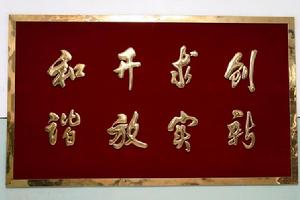 和谐
开放
求实
创新